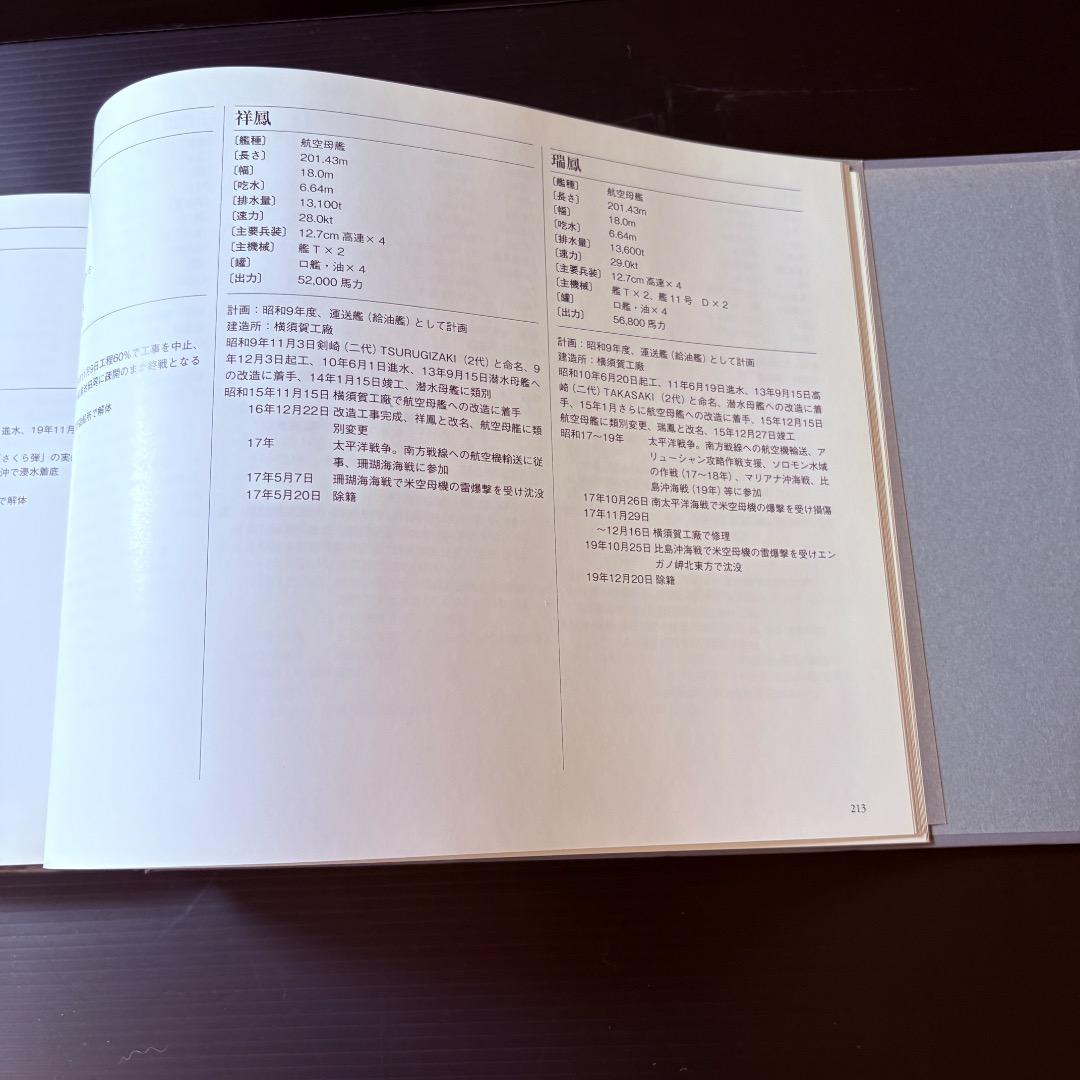 工程60%で工事を中止、
疎開のまま終戦となる
で解体
進水、19年11月
さくら弾」の実
沖で浸水着底
で解体
祥鳳
〔艦種〕 航空母艦
〔長さ〕 201.43m
〔幅〕 18.0m
〔吃水〕 6.64m
〔排水量〕 13,100t
〔速力〕 28.0kt
〔主要兵装〕 12.7cm 高連×4
〔主機械〕 艦T×2
〔罐〕 ロ艦・油×4
〔出力〕 52,000 馬力
計画：昭和9年度、運送艦（給油艦）として計画
建造所：横須賀工廠
昭和9年11月3日剣崎（二代）TSURUGIZAKI（2代）と命名、9
年12月3日起工、10年6月1日進水、13年9月15日潜水母艦へ
の改造に着手、14年1月15日竣工、潜水母艦に類別
昭和15年11月15日 横須賀工廠で航空母艦への改造に着手
16年12月22日 改造工事完成、祥鳳と改名、航空母艦に類
別変更
17年 太平洋戦争。南方戦線への航空機輸送に従
事、珊瑚海海戦に参加
17年5月7日 珊瑚海海戦で米空母機の雷爆撃を受け沈没
17年5月20日 除籍
瑞鳳
〔艦種〕 航空母艦
〔長さ〕 201.43m
〔幅〕 18.0m
〔吃水〕 6.64m
〔排水量〕 13,600t
〔速力〕 29.0kt
〔主要兵装〕 12.7cm 高連×4
〔主機械〕 艦T×2、艦11号 D×2
〔罐〕 ロ艦・油×4
〔出力〕 56,800 馬力
計画：昭和9年度、運送艦（給油艦）として計画
建造所：横須賀工廠
昭和10年6月20日起工、11年6月19日進水、13年9月15日高
崎（二代）TAKASAKI（2代）と命名、潜水母艦への改造に着
手、15年1月さらに航空母艦への改造に着手、15年12月15日
航空母艦に類別変更、瑞鳳と改名、15年12月27日竣工
昭和17〜19年 太平洋戦争。南方戦線への航空機輸送、ア
リューシャン攻略作戦支援、ソロモン水域
の作戦（17〜18年）、マリアナ沖海戦、比
島沖海戦（19年）等に参加
17年10月26日 南太平洋海戦で米空母機の爆撃を受け損傷
17年11月29日
〜12月16日 横須賀工廠で修理
19年10月25日 比島沖海戦で米空母機の雷爆撃を受けエン
ガノ岬北東方で沈没
19年12月20日 除籍
213